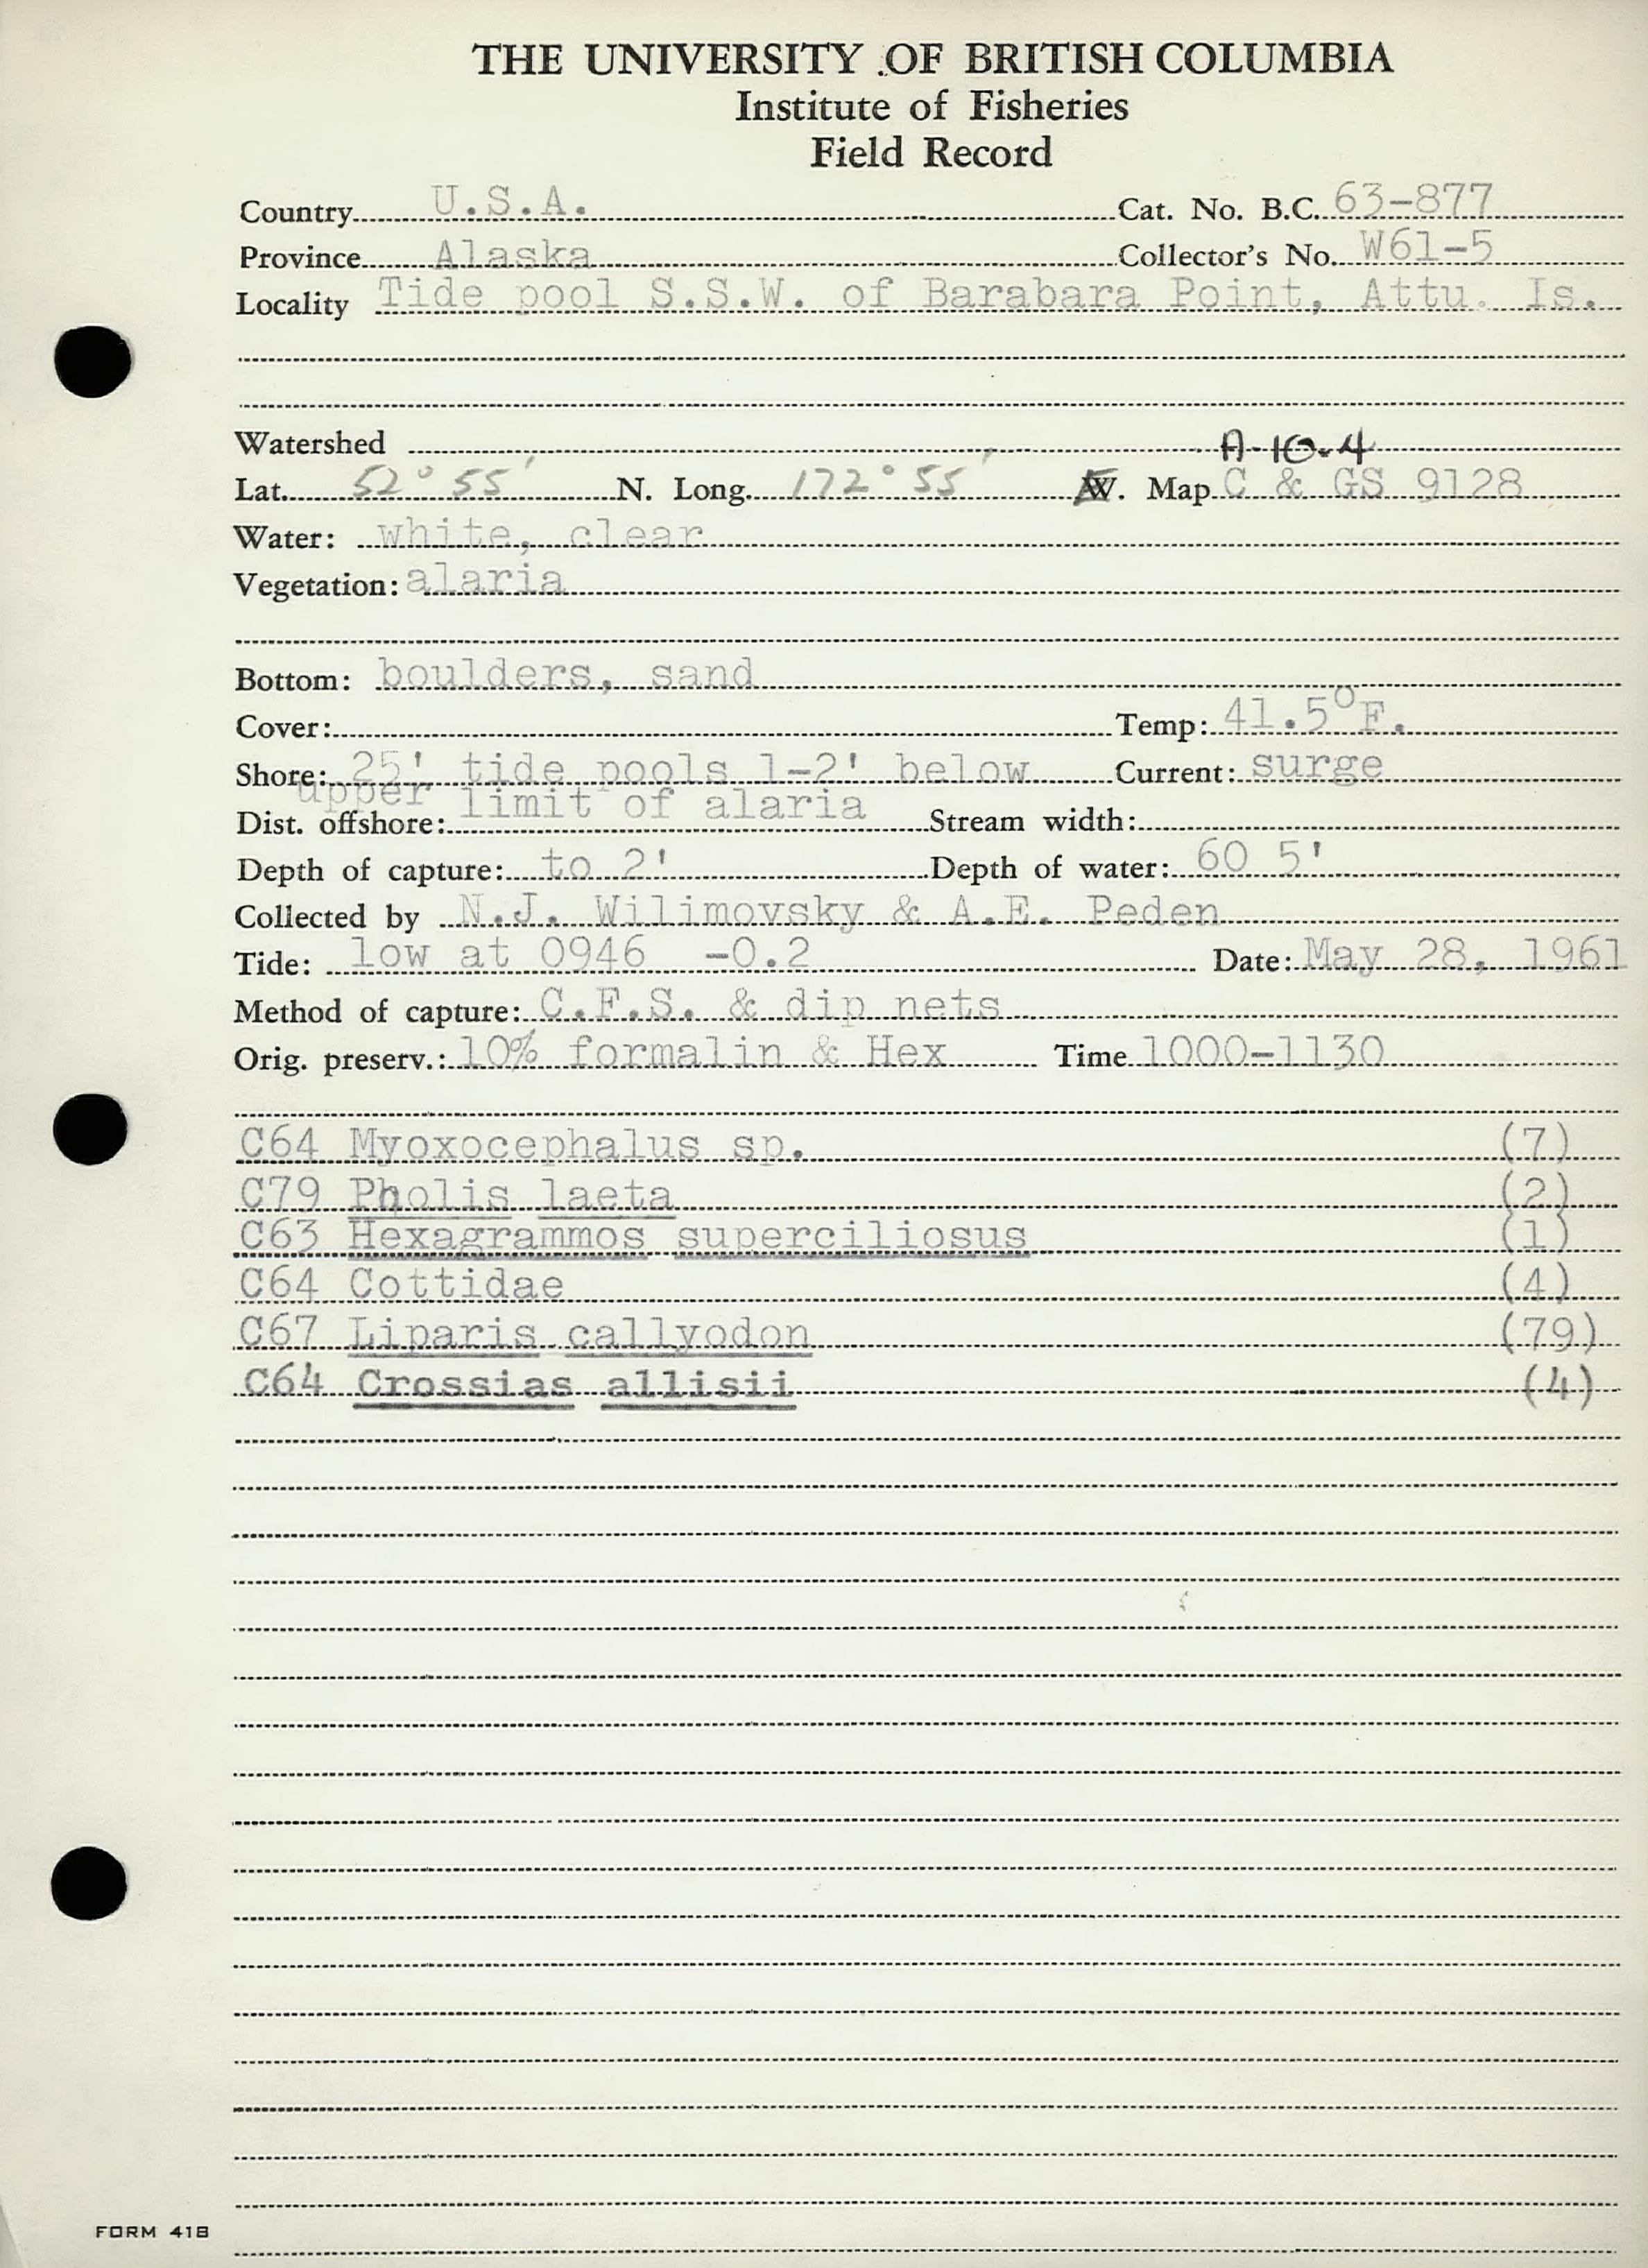 THE UNIVERSITY OF BRITISH COLUMBIA
Institute of Fisheries
Field Record
Country U.S.A. Cat. No. B.C. 63-877
Province Alaska Collector's No. W61-5
Locality Tide pool S.S.W. of Barabara Point, Attu. Is.
Watershed A-10-4
Lat. 52° 55' N. Long. 172° 55' E. Map C & GS 9128
Water: white, clear
Vegetation: alaria
Bottom: boulders, sand
Cover: Temp: 41.5°F.
Shore: 25' tide pools 1-2' below Current: surge
upper limit of alaria
Dist. offshore: Stream width:
Depth of capture: to 2' Depth of water: 60 5'
Collected by N.J. Wilimovsky & A.E. Peden
Tide: low at 0946 -0.2 Date: May 28, 1961
Method of capture: C.F.S. & dip nets
Orig. preserv.: 10% formalin & Hex Time 1000-1130
C64 Myoxocephalus sp. (7)
C79 Pholis laeta (2)
C63 Hexagrammos superciliosus (1)
C64 Cottidae (4)
C67 Liparis callyodon (79)
C64 Crossias allisii (4)
FORM 418